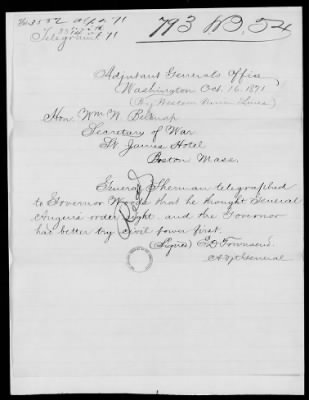 793 AD. 54
Telegram '71
Adjutant Generals Office
Washington Oct. 16. 1871
(By Western Union Lines)
Hon. Wm W. Belknap
Secretary of War
St James Hotel
Boston Mass.
General Sherman telegraphed
to Governor Woods that he thought General
Augur's order right and the Governor
had better try civil power first.
(Signed) E.D. Townsend